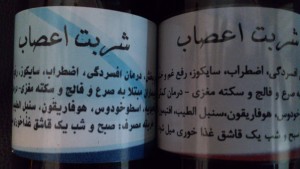 شربت اعصاب
درمان افسردگی، اضطراب، سایکوز، رفع
مبتلا به صرع و فالج و سکته مغزی - درمان
اسطوخودوس، هوفاریقون، سنبل الطیب،
مصرف: صبح و شب یک قاشق غذاخوری
شربت اعصاب
افسردگی، اضطراب، سایکوز، رفع غم و
به صرع و فالج و سکته مغزی - درمان
هوفاریقون، سنبل الطیب،
و شب یک قاشق غذا خوری میل